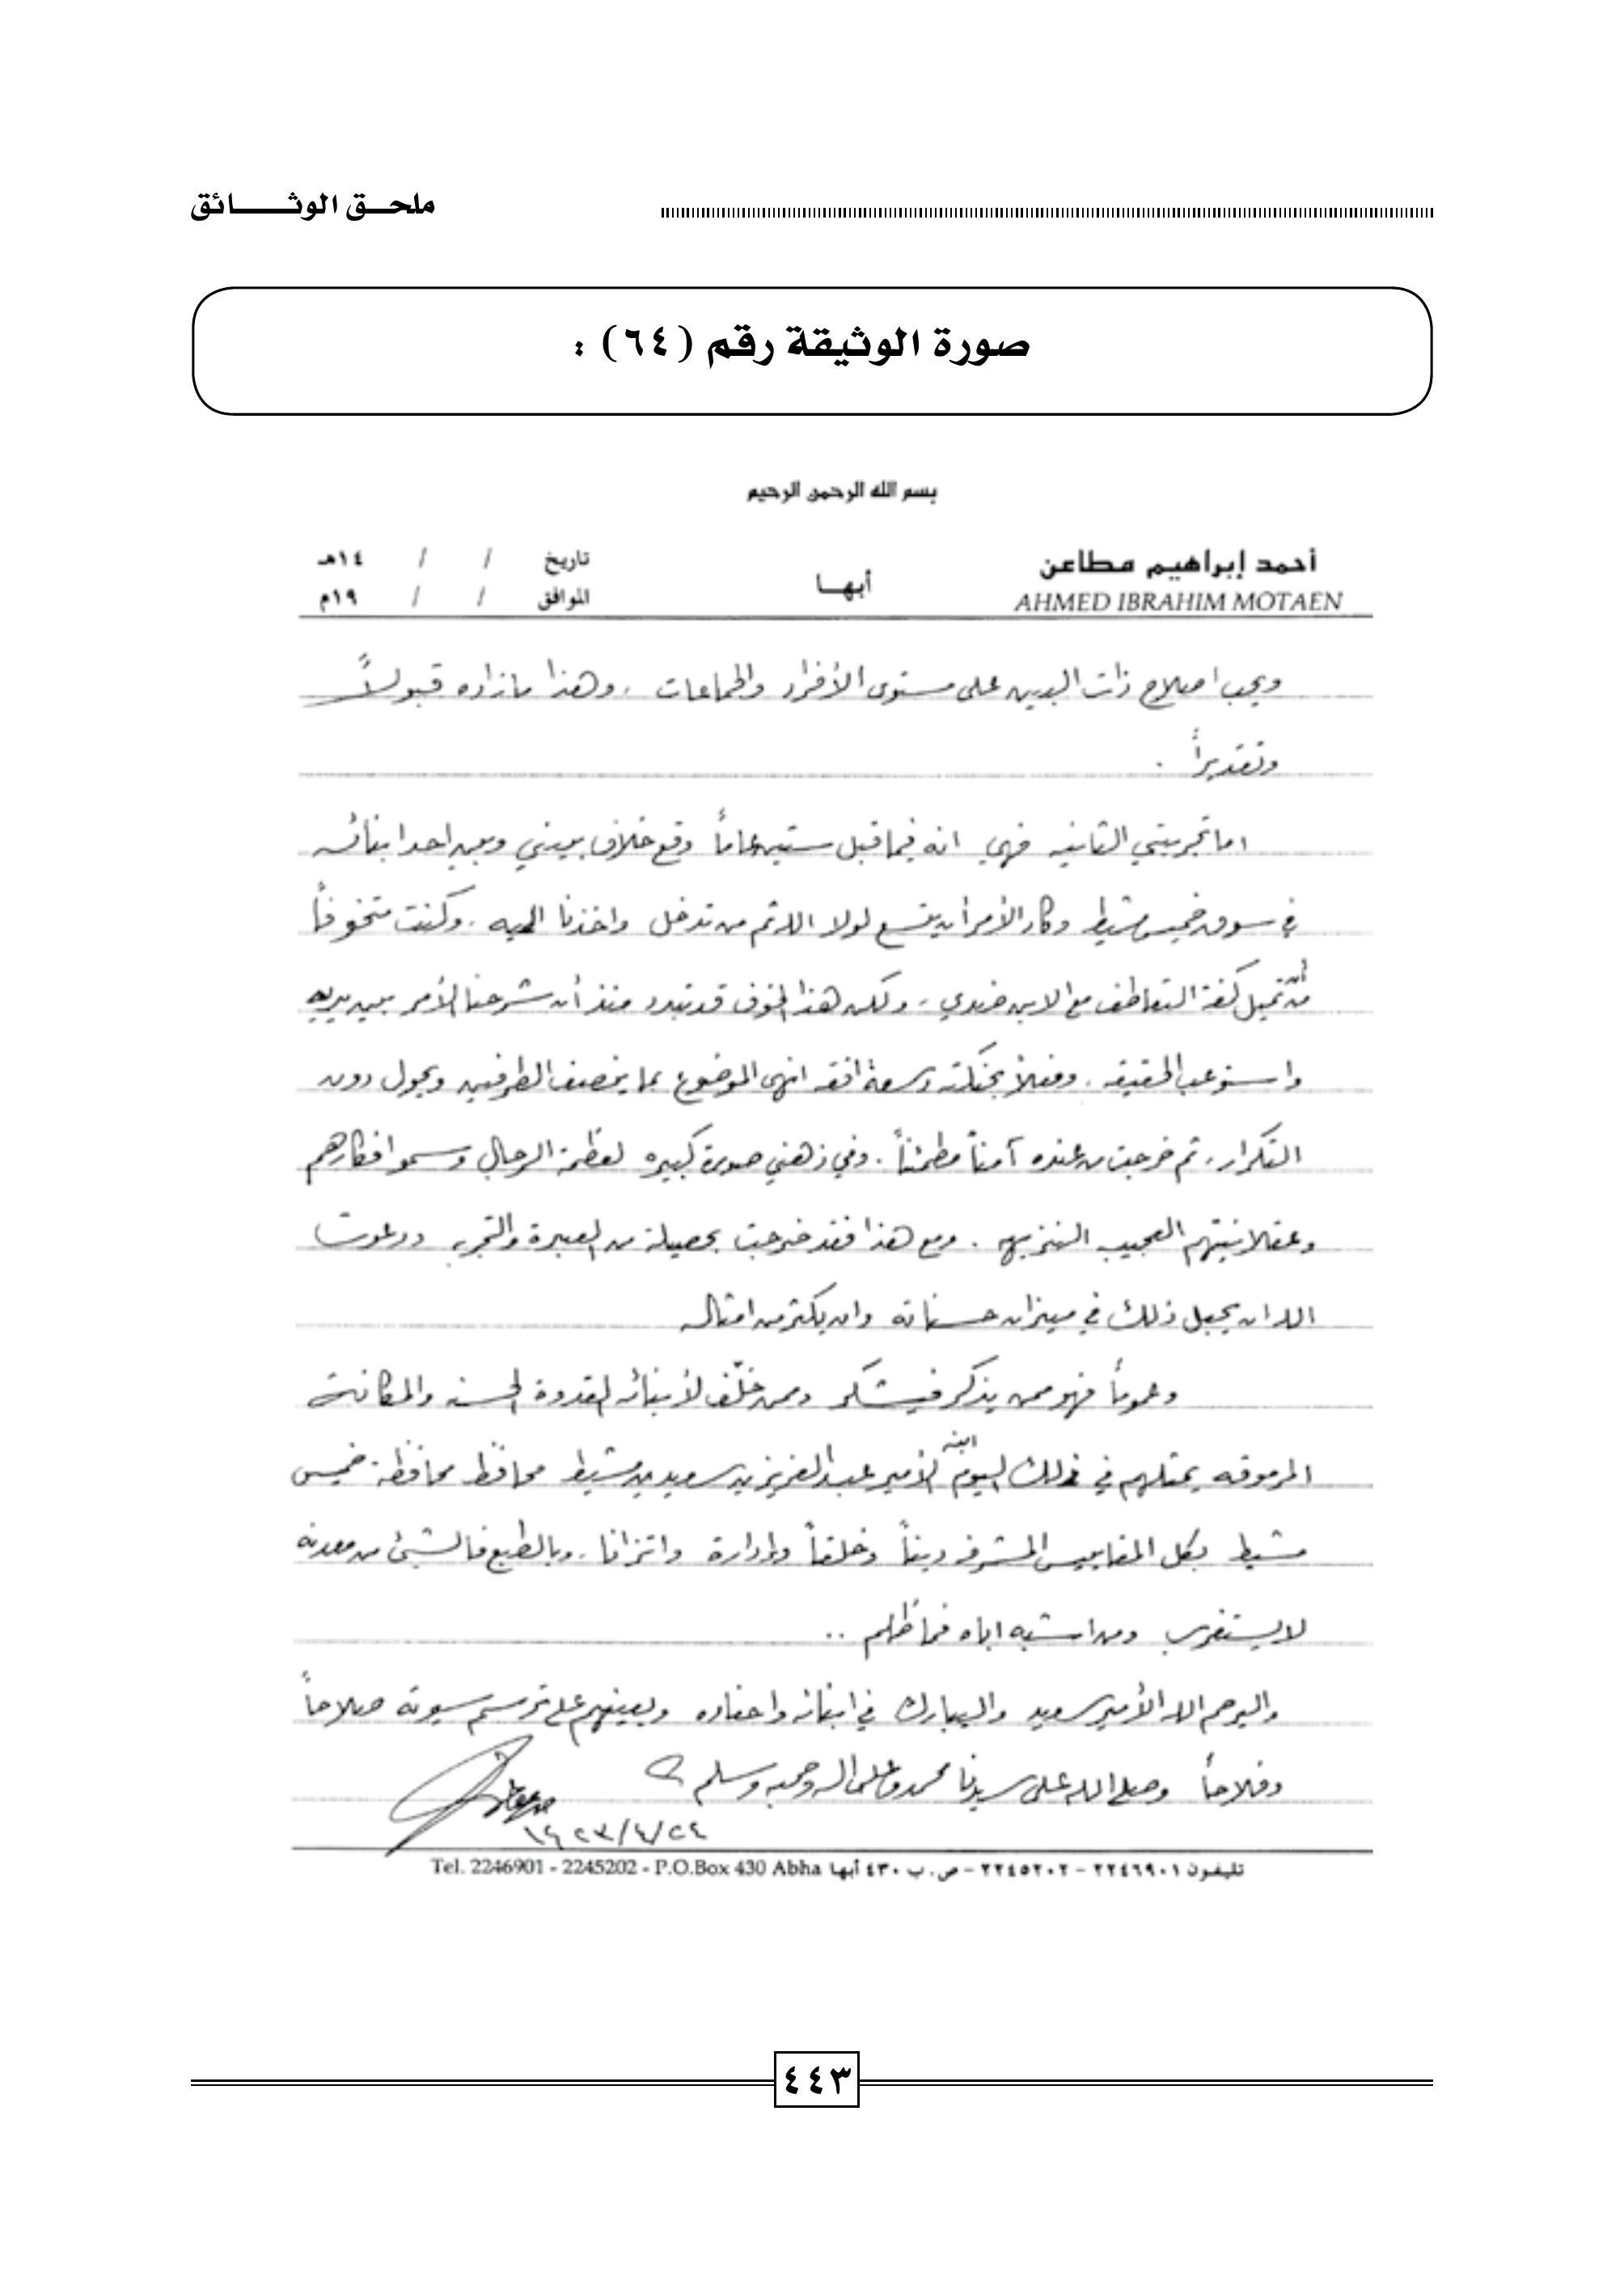 ملحـــق الوثـــــــائق
صورة الوثيقة رقم (٦٤) :
بسم الله الرحمن الرحيم
أحمد إبراهيم مطاعن
AHMED IBRAHIM MOTAEN
أبهــا
تاريخ / / ١٤هـ
الموافق / / ١٩م
ويحب اصلاح ذات البين على مستوى الأفراد والجماعات . وهذا ما زاده قبولاً
وتقديراً .
اما تجربتي الثانيه فهي انه فيما قبل ستين عاماً وقع خلاف بيني وبين احد ابنائه
في سوق خميس مشيط وكاد الأمر أن يتسع لولا الله ثم من تدخل واخذنا اليه . وكنت متخوفاً
أن تميل كفة التعاطف مع الابن ضدي . ولكن هذا الخوف قد تبدد منذ أن شرحنا الأمر بين يديه
واستوعب الحقيقه . وفعلاً بحنكته وسعة افقه انهى الموضوع بما ينصف الطرفين ويحول دون
التكرار . ثم خرجت من عنده آمناً مطمئناً . وفي ذهني صورة كبيره لعظمة الرجال وسمو افكارهم
وعقلانيتهم العجيبه النزيهه . ومع هذا فقد خرجت بحصيلة من العبرة والتجربه ودعوت
الله ان يجعل ذلك في ميزان حسناته وان يكثر من امثاله
وعموماً فهو ممن يذكر فيشكر وممن خلّف لأبنائه القدوة الحسنه والمكانة
المرموقه يمثلهم في ذلك اليوم ابنه الأمير عبدالعزيز بن سعيد بن مشيط محافظ محافظة خميس
مشيط بكل المقاييس المشرفه ديناً وخلقاً وإدارة واتزانا . وبالطبع فالشيئ من معدنه
لا يستغرب ومن اشبه اباه فما ظلم ..
واليرحم الله الأمير سعيد واليبارك في ابنائه واحفاده ويعينهم على ترسم سيرته صلاحاً
وفلاحاً وصلى الله على سيدنا محمد وعلى اله وصحبه وسلم
١٤٢٣/٤/٢٤
تليفون ٢٢٤٦٩٠١ - ٢٢٤٥٢٠٢ - ص.ب ٤٣٠ أبها Tel. 2246901 - 2245202 - P.O.Box 430 Abha
٤٤٣